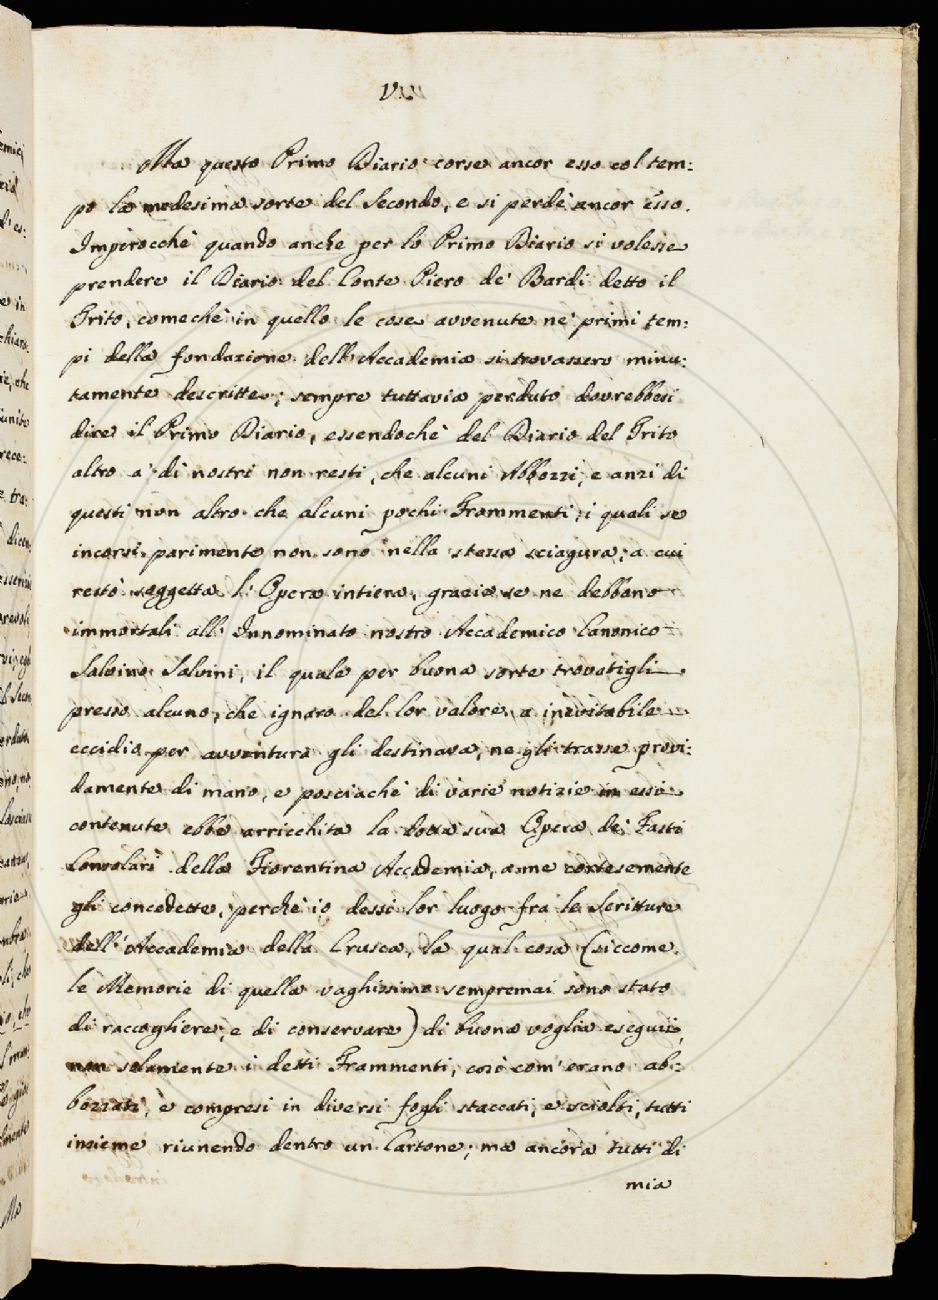 V.
Ma questo Primo Diario corse ancor esso col tem:
po la medesima sorte del Secondo, e si perdè ancor esso.
Imperocchè quando anche per lo Primo Diario si volesse
prendere il Diario del Conte Piero de' Bardi detto il
Trito, comechè in quello le cose avvenute ne' primi tem:
pi della fondazione dell'Accademia si trovassero minu:
tamente descritte; sempre tuttavia perduto dovrebbesi
dire il Primo Diario, essendochè del Diario del Trito
altro a' dì nostri non resti, che alcuni Abbozzi, e anzi di
questi non altro che alcuni pochi Frammenti; i quali se
incorsi parimente non sono nella stessa sciagura, a cui
restò soggetta l'Opera intiera, grazie se ne debbono
immortali all'Innominato nostro Accademico Canonico
Salvino Salvini, il quale per buona sorte trovatigli
presso alcuno, che ignaro del lor valore, a inevitabile
eccidio per avventura gli destinava, ne gli trasse provi:
damente di mano, e posciachè di varie notizie in essi
contenute ebbe arricchita la dotta sua Opera de' Fasti
Consolari della Fiorentina Accademia, a me cortesemente
gli concedette, perchè io dessi lor luogo fra le Scritture
dell'Accademia della Crusca, la qual cosa (siccome
le Memorie di quella vaghissimo sempremai sono stato
di raccogliere, e di conservare) di buona voglia eseguii,
non solamente i detti Frammenti, così com'erano ab:
bozzati, e compresi in diversi fogli staccati, e sciolti, tutti
insieme riunendo dentro un Cartone; ma ancora tutti di
mia